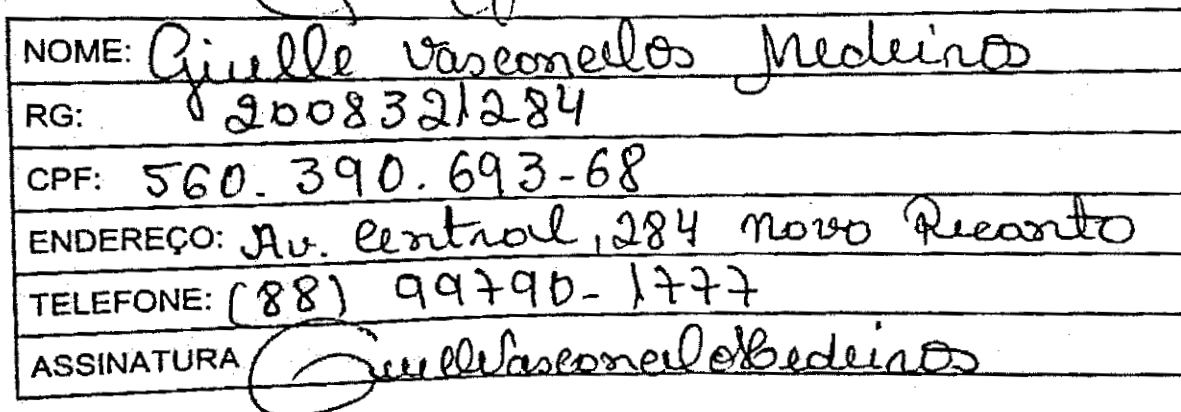 NOME: Giselle Vasconcelos Medeiros
RG: 2008321284
CPF: 560.390.693-68
ENDEREÇO: Av. Central, 284 Novo Recanto
TELEFONE: (88) 99790-1777
ASSINATURA